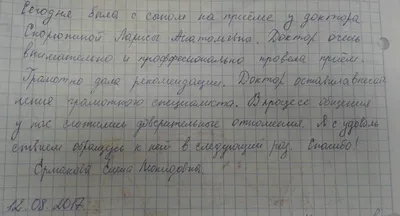 Сегодня была с сыном на приёме у доктора
Скорюпиной Лариса Анатольевна. Доктор очень
внимательно и профессионально провела приём.
Грамотно дала рекомендации. Доктор оставила впечат
ление грамотного специалиста. В процессе общения
у нас сложились доверительные отношения. Я с удоволь
ствием обращусь к ней в следующий раз. Спасибо!
Ермакова Елена Леонидовна.
12.08.2017